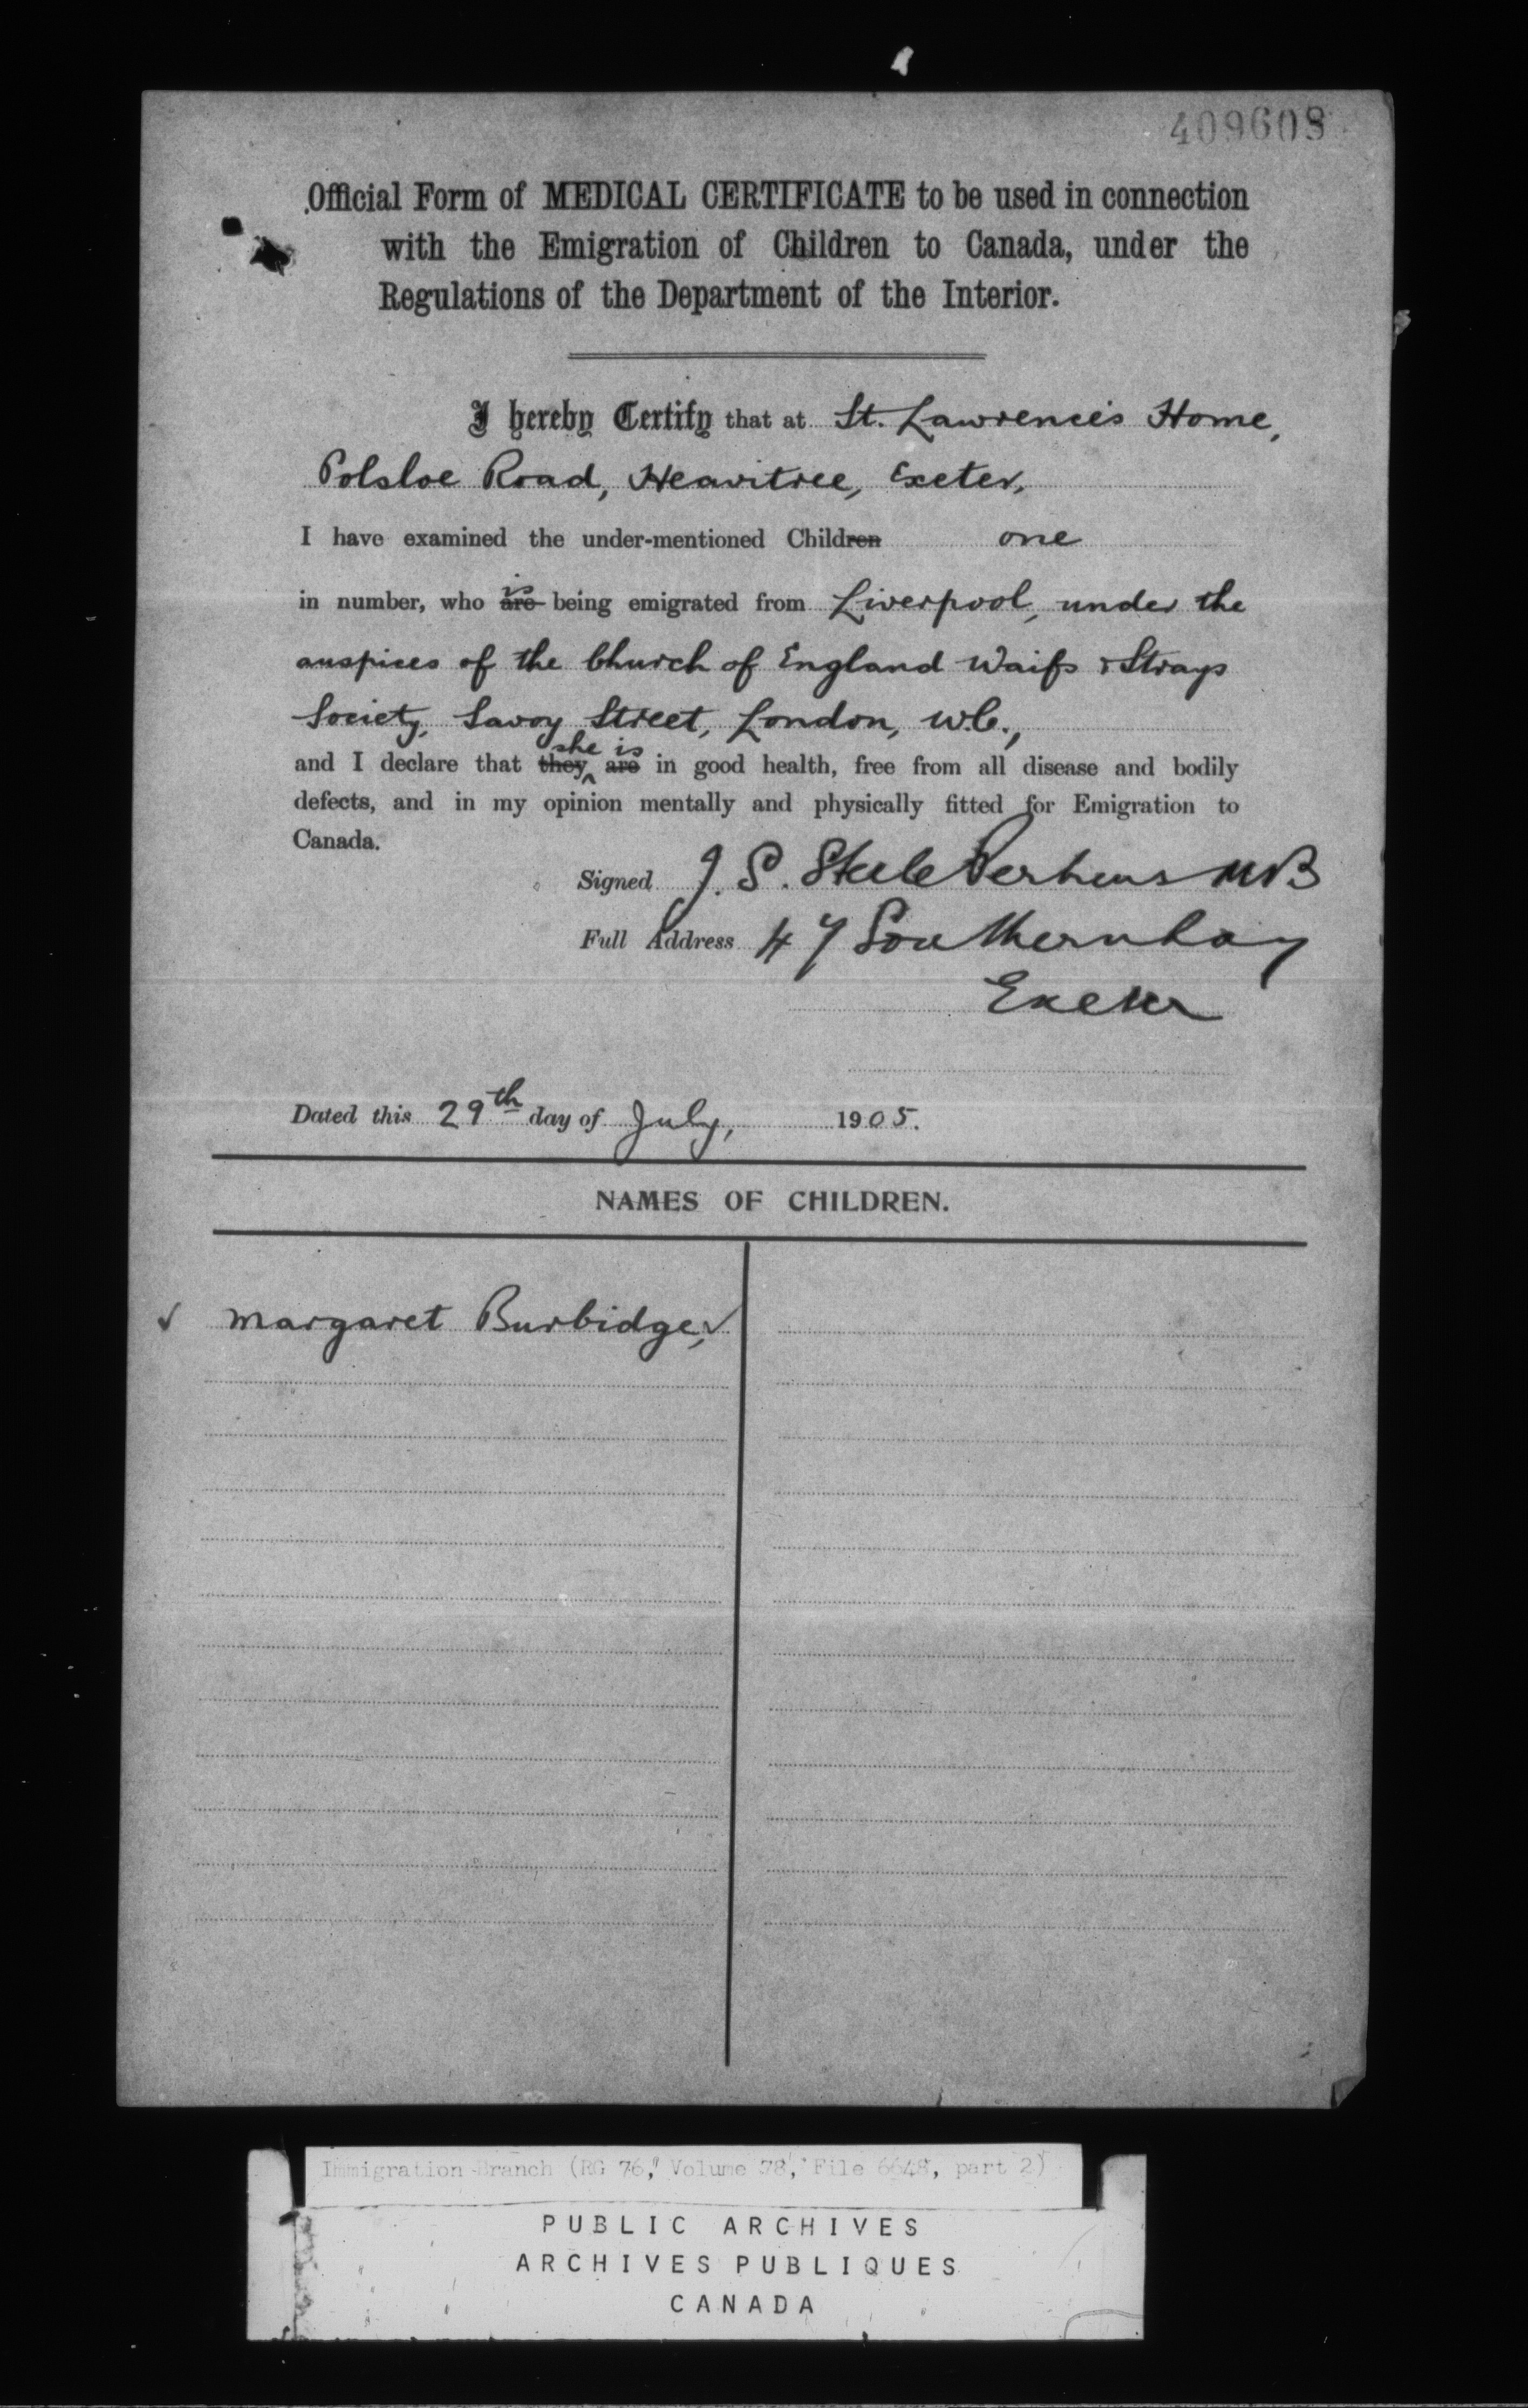 409608
Official Form of MEDICAL CERTIFICATE to be used in connection
with the Emigration of Children to Canada, under the
Regulations of the Department of the Interior.
I hereby Certify that at St. Lawrence's Home,
Polsloe Road, Heavitree, Exeter,
I have examined the under-mentioned Children one
is
in number, who are being emigrated from Liverpool, under the
auspices of the Church of England Waifs & Strays
Society, Savoy Street, London, W.C.,
she is
and I declare that they are in good health, free from all disease and bodily
defects, and in my opinion mentally and physically fitted for Emigration to
Canada.
Signed J. S. Steele Perkins MB
Full Address 47 Southernhay
Exeter
Dated this 29th day of July, 1905.
NAMES OF CHILDREN.
✓ Margaret Burbidge, ✓
Immigration Branch (RG 76, Volume 78, File 6648, part 2)
PUBLIC ARCHIVES
ARCHIVES PUBLIQUES
CANADA